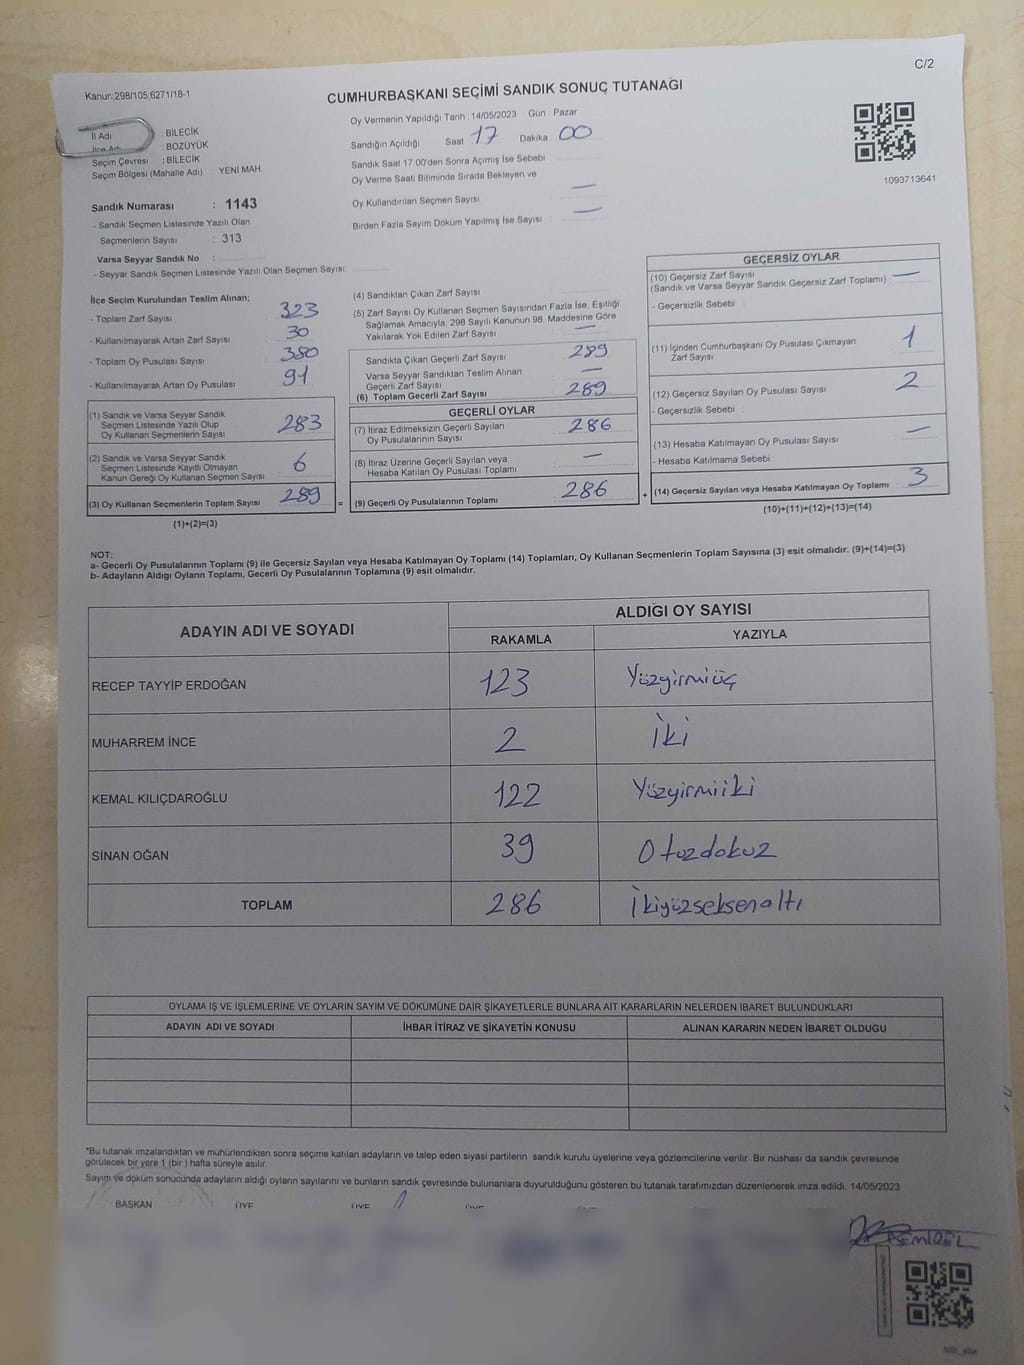 C/2
Kanun;298/105,6271/18-1
CUMHURBAŞKANI SEÇİMİ SANDIK SONUÇ TUTANAĞI
İl Adı : BİLECİK
İlçe Adı : BOZÜYÜK
Seçim Çevresi : BİLECİK
Seçim Bölgesi (Mahalle Adı) : YENİ MAH.
Sandık Numarası : 1143
- Sandık Seçmen Listesinde Yazılı Olan
Seçmenlerin Sayısı : 313
Varsa Seyyar Sandık No :
- Seyyar Sandık Seçmen Listesinde Yazılı Olan Seçmen Sayısı:
Oy Vermenin Yapıldığı Tarih : 14/05/2023 Gün : Pazar
Sandığın Açıldığı Saat 17 Dakika 00
Sandık Saat 17:00'den Sonra Açımış İse Sebebi
Oy Verme Saati Bitiminde Sırada Bekleyen ve
Oy Kullandırılan Seçmen Sayısı —
Birden Fazla Sayım Döküm Yapılmış İse Sayısı : —
1093713641
İlçe Seçim Kurulundan Teslim Alınan;
- Toplam Zarf Sayısı : 323
- Kullanılmayarak Artan Zarf Sayısı : 30
- Toplam Oy Pusulası Sayısı : 380
- Kullanılmayarak Artan Oy Pusulası : 91
(1) Sandık ve Varsa Seyyar Sandık
Seçmen Listesinde Yazılı Olup
Oy Kullanan Seçmenlerin Sayısı : 283
(2) Sandık ve Varsa Seyyar Sandık
Seçmen Listesinde Kayıtlı Olmayan
Kanun Gereği Oy Kullanan Seçmen Sayısı : 6
(3) Oy Kullanan Seçmenlerin Toplam Sayısı : 289
(1)+(2)=(3)
(4) Sandıktan Çıkan Zarf Sayısı :
(5) Zarf Sayısı Oy Kullanan Seçmen Sayısından Fazla İse, Eşitliği
Sağlamak Amacıyla; 298 Sayılı Kanunun 98. Maddesine Göre
Yakılarak Yok Edilen Zarf Sayısı : —
Sandıkta Çıkan Geçerli Zarf Sayısı : 289
Varsa Seyyar Sandıktan Teslim Alınan
Geçerli Zarf Sayısı : —
(6) Toplam Geçerli Zarf Sayısı : 289
GEÇERLİ OYLAR
(7) İtiraz Edilmeksizin Geçerli Sayılan
Oy Pusulalarının Sayısı : 286
(8) İtiraz Üzerine Geçerli Sayılan veya
Hesaba Katılan Oy Pusulası Toplamı : —
= (9) Geçerli Oy Pusulalarının Toplamı : 286
GEÇERSİZ OYLAR
(10) Geçersiz Zarf Sayısı
(Sandık ve Varsa Seyyar Sandık Geçersiz Zarf Toplamı) : —
- Geçersizlik Sebebi :
(11) İçinden Cumhurbaşkanı Oy Pusulası Çıkmayan
Zarf Sayısı : 1
(12) Geçersiz Sayılan Oy Pusulası Sayısı : 2
- Geçersizlik Sebebi :
(13) Hesaba Katılmayan Oy Pusulası Sayısı : —
- Hesaba Katılmama Sebebi :
+ (14) Geçersiz Sayılan veya Hesaba Katılmayan Oy Toplamı : 3
(10)+(11)+(12)+(13)=(14)
NOT:
a- Geçerli Oy Pusulalarının Toplamı (9) ile Geçersiz Sayılan veya Hesaba Katılmayan Oy Toplamı (14) Toplamları, Oy Kullanan Seçmenlerin Toplam Sayısına (3) eşit olmalıdır. (9)+(14)=(3)
b- Adayların Aldığı Oyların Toplamı, Geçerli Oy Pusulalarının Toplamına (9) eşit olmalıdır.
ADAYIN ADI VE SOYADI
ALDIĞI OY SAYISI
RAKAMLA YAZIYLA
RECEP TAYYİP ERDOĞAN 123 Yüzyirmiüç
MUHARREM İNCE 2 İki
KEMAL KILIÇDAROĞLU 122 Yüzyirmiiki
SİNAN OĞAN 39 Otuzdokuz
TOPLAM 286 İkiyüzseksenaltı
OYLAMA İŞ VE İŞLEMLERİNE VE OYLARIN SAYIM VE DÖKÜMÜNE DAİR ŞİKAYETLERLE BUNLARA AİT KARARLARIN NELERDEN İBARET BULUNDUKLARI
ADAYIN ADI VE SOYADI İHBAR İTİRAZ VE ŞİKAYETİN KONUSU ALINAN KARARIN NEDEN İBARET OLDUĞU
*Bu tutanak imzalandıktan ve mühürlendikten sonra seçime katılan adayların ve talep eden siyasi partilerin, sandık kurulu üyelerine veya gözlemcilerine verilir. Bir nüshası da sandık çevresinde
görülecek bir yere 1 (bir) hafta süreyle asılır.
Sayım ve döküm sonucunda adayların aldığı oyların sayılarını ve bunların sandık çevresinde bulunanlara duyurulduğunu gösteren bu tutanak tarafımızdan düzenlenerek imza edildi. 14/05/2023
BAŞKAN ÜYE ÜYE ÜYE